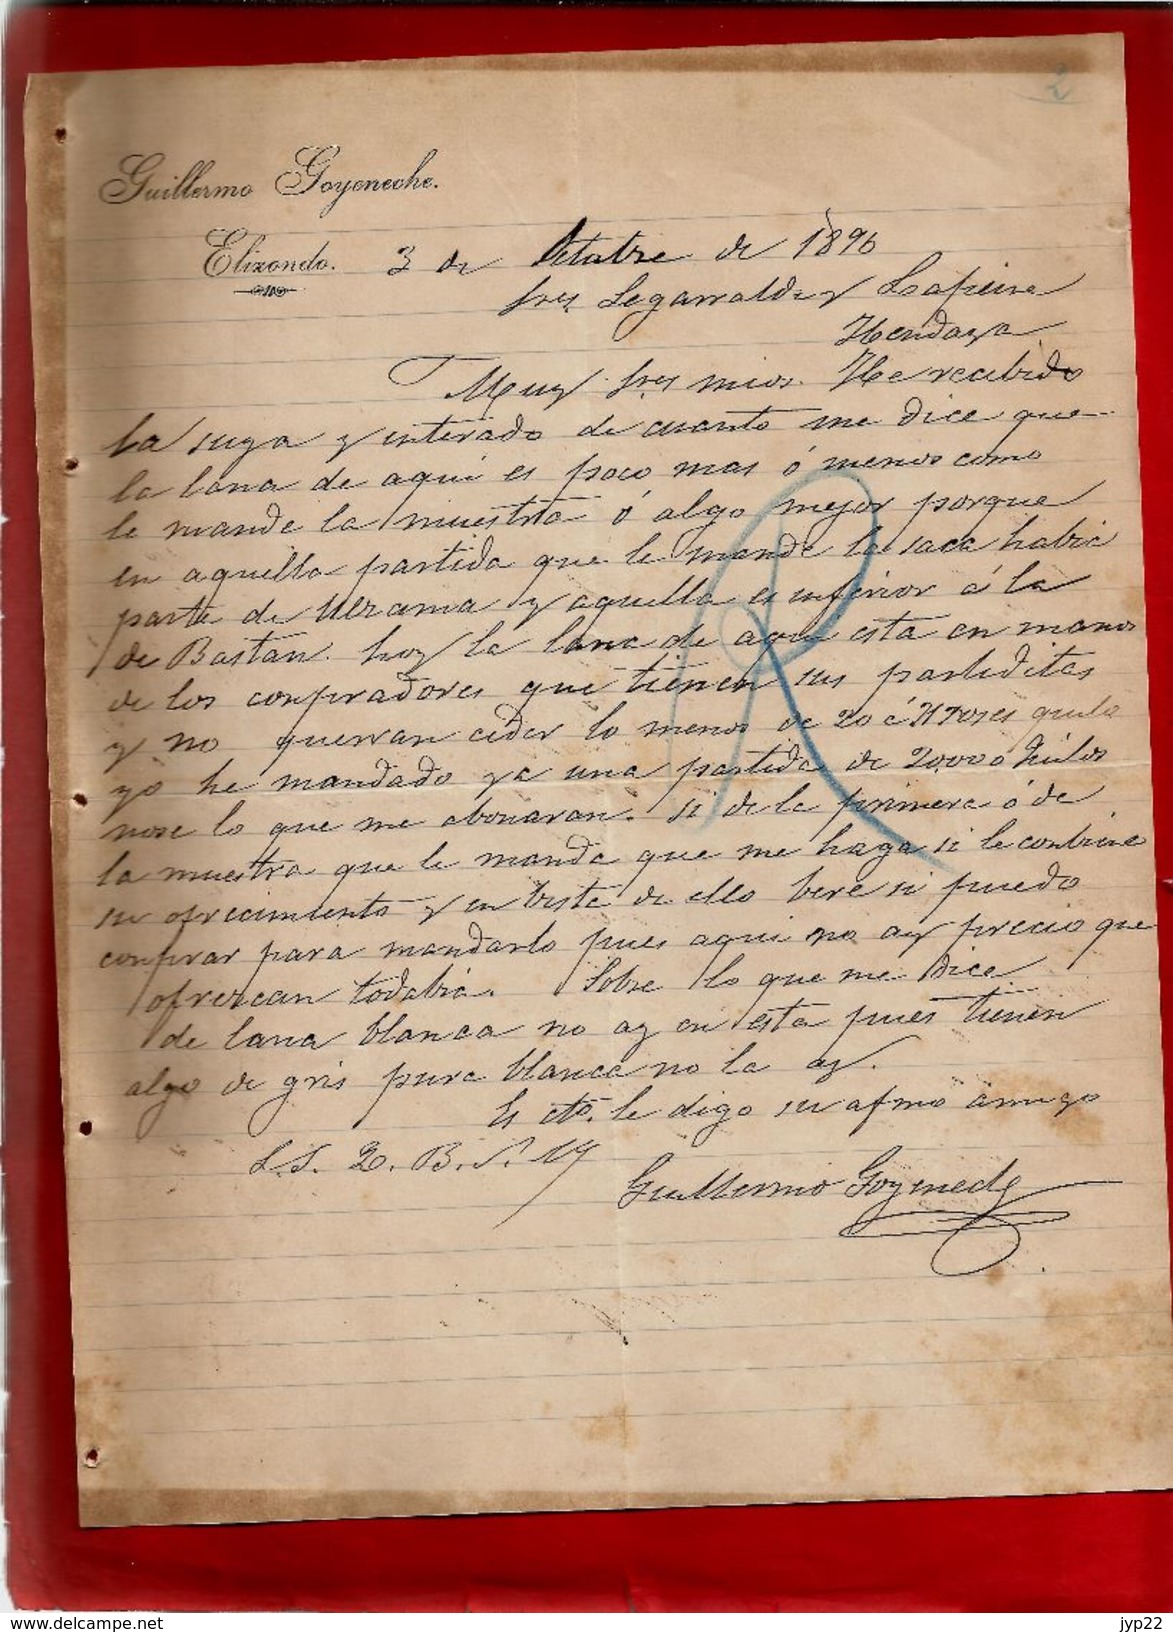 2
Guillermo Goyeneche.
Elizondo. 3 de Octubre de 1896
Sres Legarralde y Lapeire
Hendaya
Muy Sres mios. He recibido
la suya y enterado de cuanto me dice que
la lana de aqui es poco mas ó menos como
le mande la muestra ó algo mejor porque
en aquella partida que le mande la saca habia
parte de Ulzama y aquella es inferior á la
de Bastan. hoy la lana de aqui esta en manos
de los conpradores que tienen sus partiditas
y no querran ceder lo menos de 20 á 21 kilo
yo he mandado ya una partida de 20,000 kilos
nose lo que me abonaran. si de la primera ó de
la muestra que le manda que me haga si le conbiene
su ofrecimiento y en bista de ello bere si puedo
conprar para mandarlo pues aqui no ay precio que
ofrezcan todabia. Sobre lo que me dice
de lana blanca no ay en esta pues tienen
algo de gris pura blanca no la ay.
Es cto. le digo su afmo amigo
S.S. Q. B. S. M
Guillermo Goyeneche
R
www.delcampe.net
jyp22